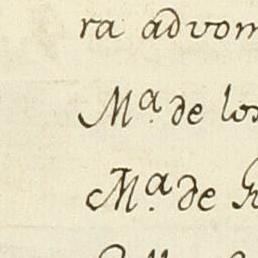 ra advom
Mª. de los
Mª. de